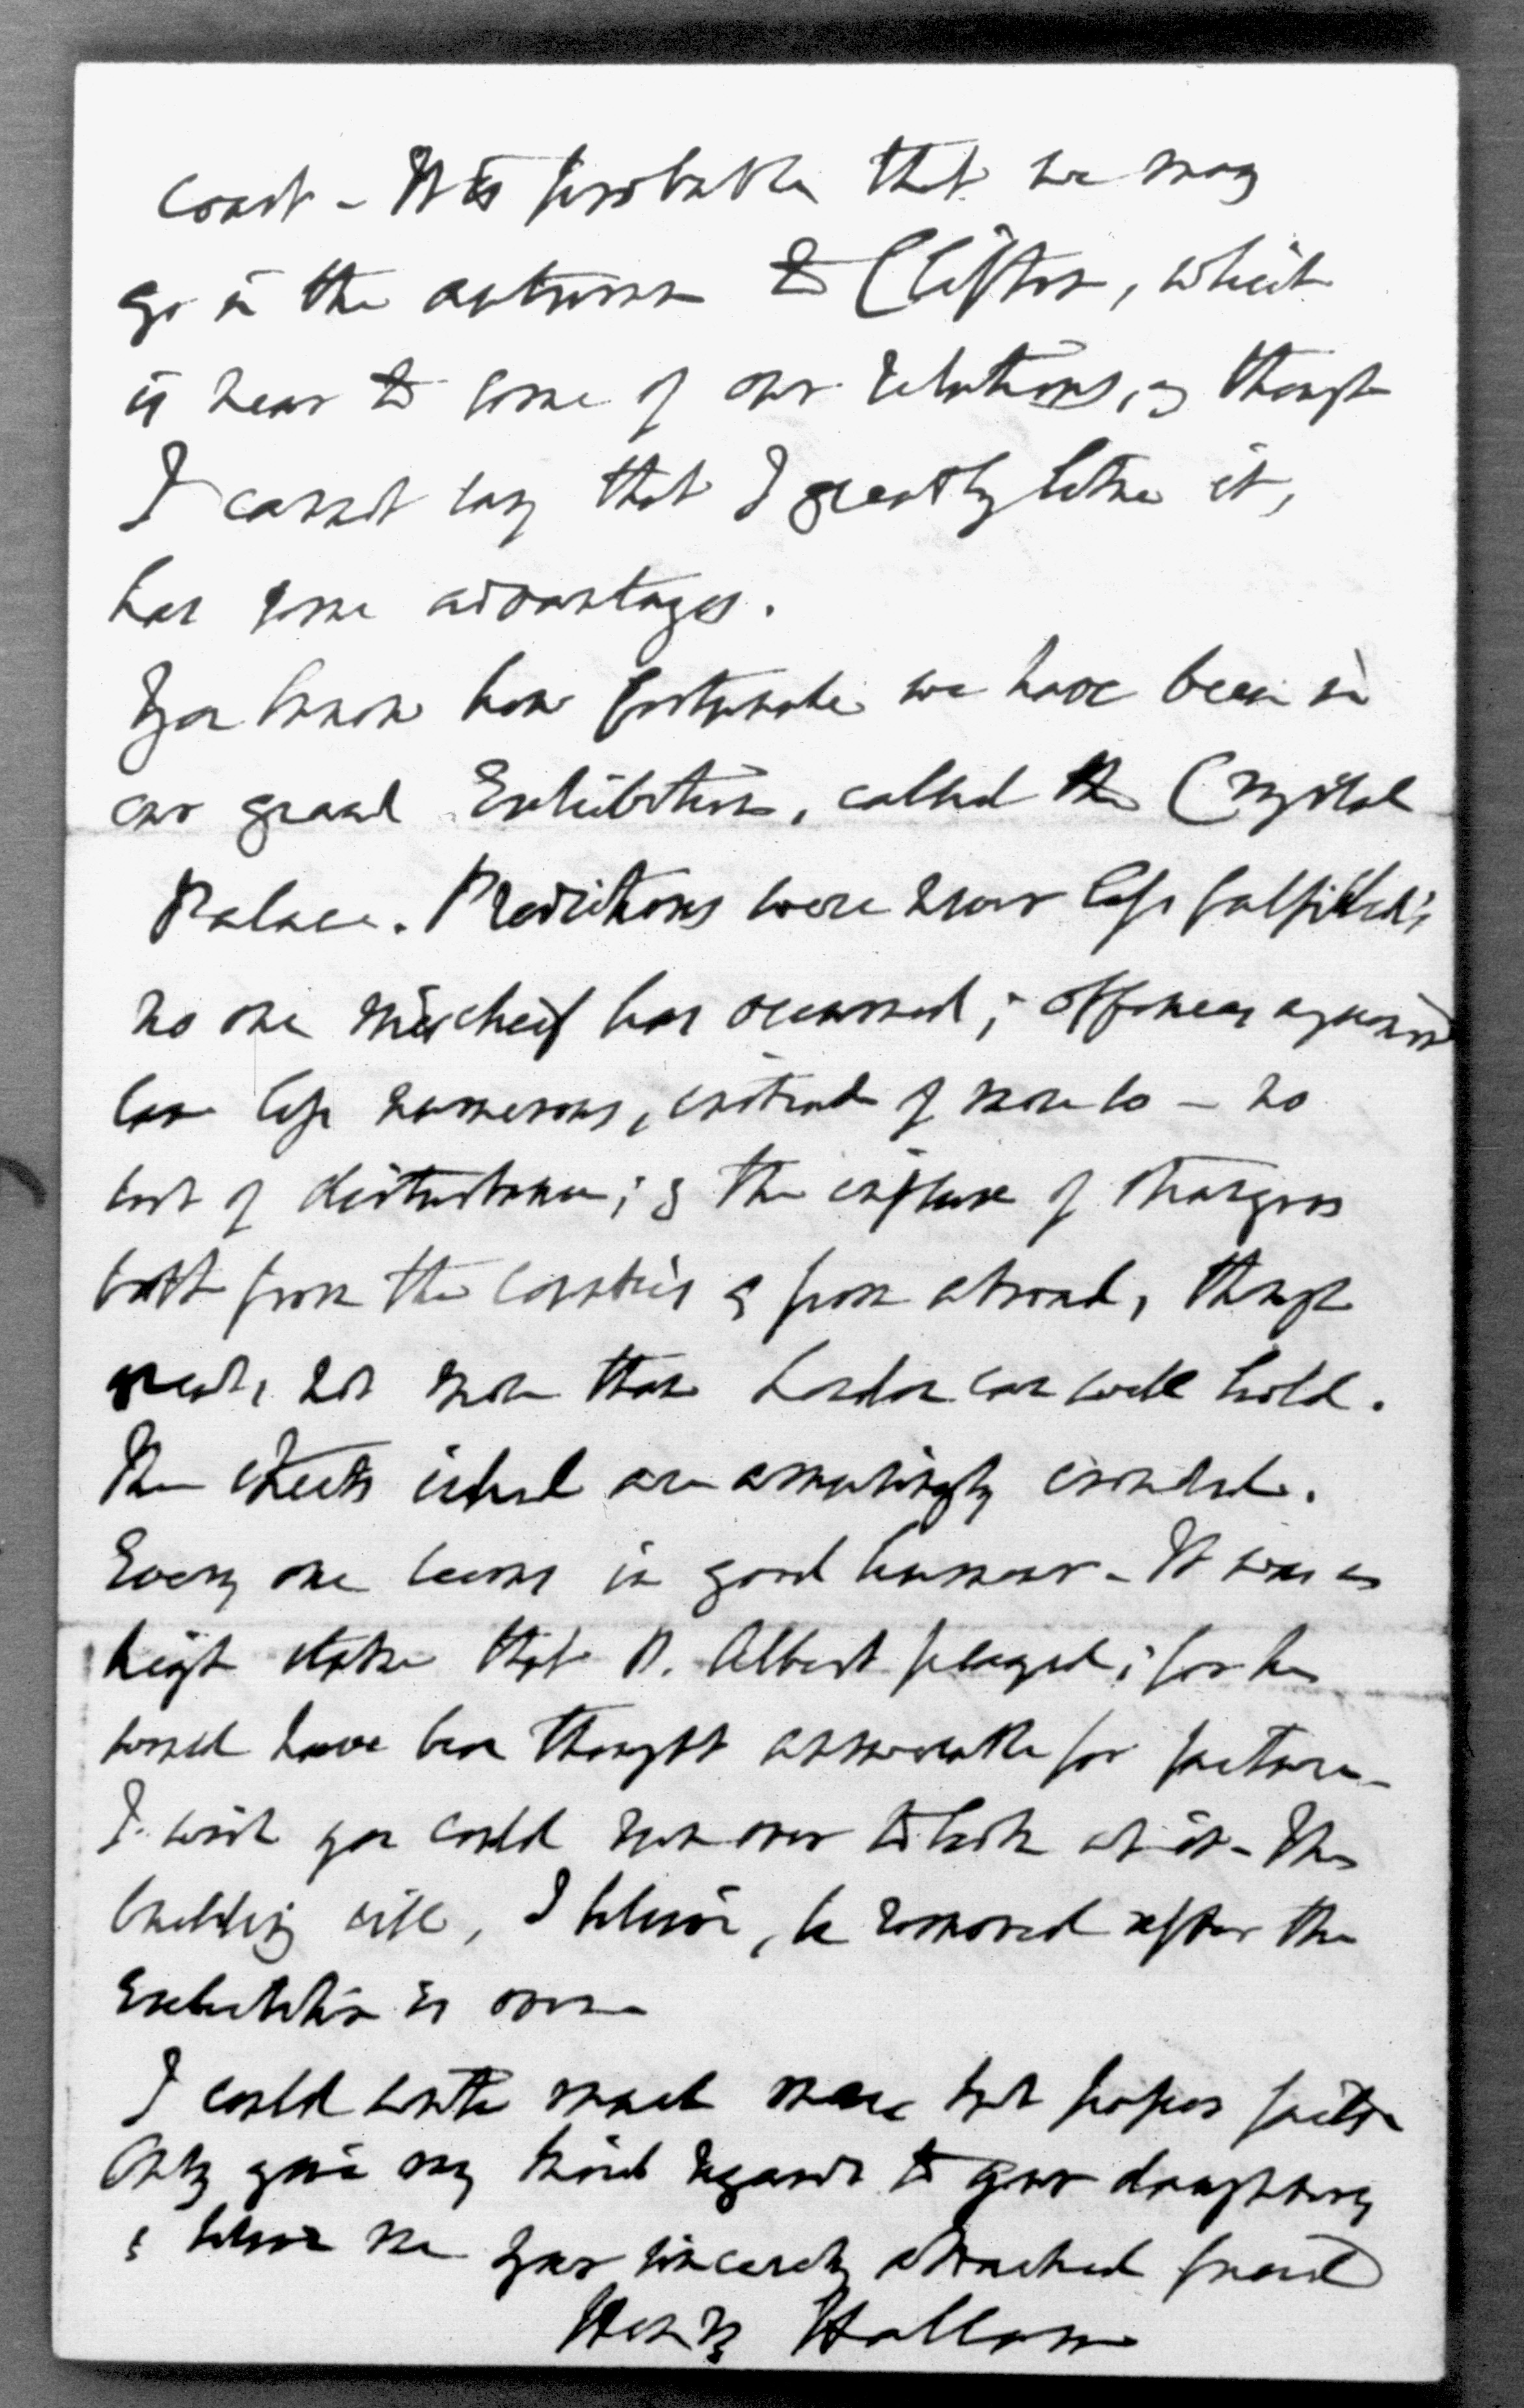 coast - It is probable that we may
go in the autumn to Clifton, which
is near to some of our relations, & though
I cannot say that I greatly like it,
has some advantages.
You know how fortunate we have been in
our grand Exhibition, called the Crystal
Palace. Predictions were never less fulfilled;
no one mischief has occurred; offences against
law less numerous, instead of more so - no
sort of disturbance; & the influx of strangers
both from the counties & from abroad, though
great, not more than London can well hold.
The streets indeed are amazingly crowded.
Every one seems in good humour - It was a
high stake that P. Albert played; for he
would have been thought answerable for failure -
I wish you could run over to look at it - The
building will, I believe, be removed after the
Exhibition is over -
I could write much more but paper fails
Only give my kind regards to your daughters
& believe me your sincerely attached friend
Henry Hallam